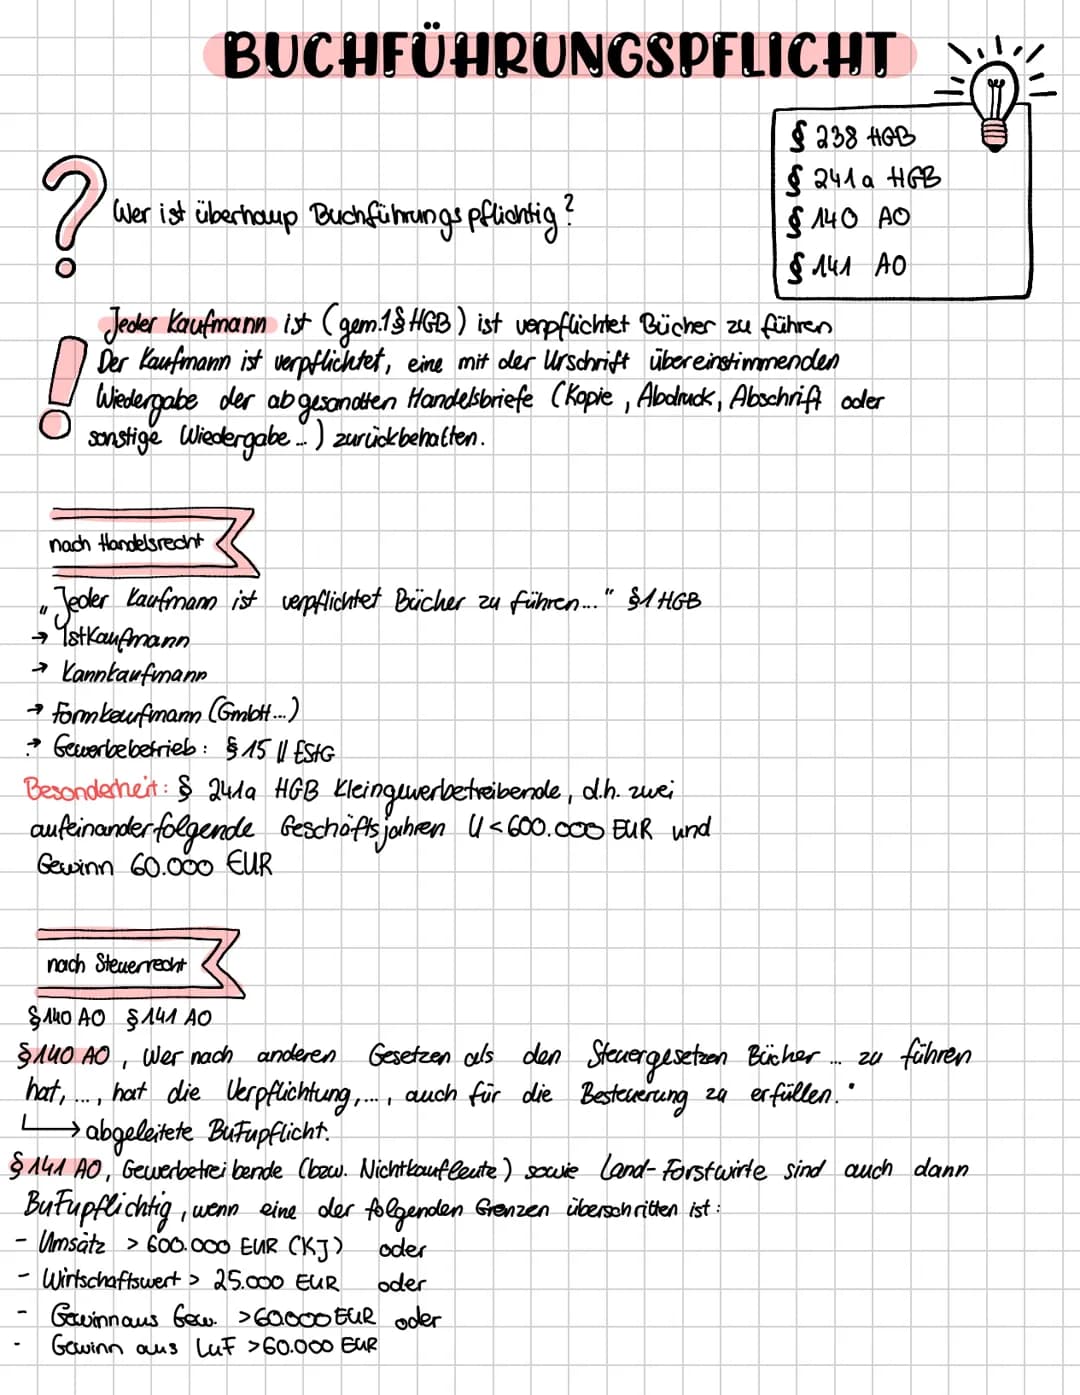 BUCHFÜHRUNGSPFLICHT
§ 238 HGB
§ 241a HGB
§ 140 AO
§ 141 AO
Wer ist überhaup Buchführungspflichtig?
Jeder Kaufmann ist (gem.1§HGB) ist verpflichtet Bücher zu führen
Der Kaufmann ist verpflichtet, eine mit der Urschrift übereinstimmenden
Wiedergabe der abgesandten Handelsbriefe (Kopie, Abdruck, Abschrift oder
sonstige Wiedergabe...) zurückbehalten.
nach Handelsrecht
„Jeder Kaufmann ist verpflichtet Bücher zu führen..." §1 HGB
→ Istkaufmann
→ Kannkaufmann
→ Formkaufmann (GmbH...)
→ Gewerbebetrieb: § 15 II EStG
Besonderheit: § 241a HGB Kleingewerbetreibende, d.h. zwei
aufeinanderfolgende Geschäftsjahren U < 600.000 EUR und
Gewinn 60.000 EUR
nach Steuerrecht
§140 AO §141 AO
§140 AO, Wer nach anderen Gesetzen als den Steuergesetzen Bücher ... zu führen
hat, ..., hat die Verpflichtung, ..., auch für die Besteuerung zu erfüllen."
→ abgeleitete BuFupflicht.
§141 AO, Gewerbetreibende (bzw. Nichtkaufleute) sowie Land-Forstwirte sind auch dann
BuFupflichtig, wenn eine der folgenden Grenzen überschritten ist:
- Umsatz > 600.000 EUR (KJ) oder
- Wirtschaftswert > 25.000 EUR oder
- Gewinn aus Gew. >60.000 EUR oder
- Gewinn aus LuF >60.000 EUR